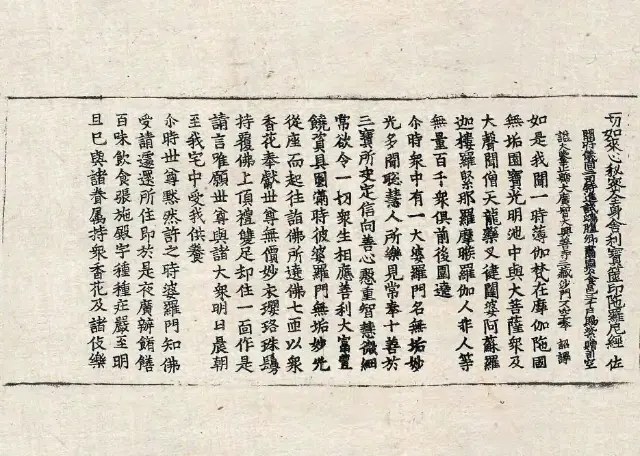 一切如來心秘密全身舍利寶篋印陀羅尼經 佐
開府儀同三司特進試鴻臚卿肅國公食邑三千戶賜紫贈司空
謚大鑒正號大廣智大興善寺三藏沙門不空奉 詔譯
如是我聞一時薄伽梵在摩伽陁國
無垢園寶光明池中與大菩薩衆及
大聲聞僧天龍藥叉健闥婆阿蘇羅
迦樓羅緊那羅摩睺羅伽人非人等
無量百千衆俱前後圍遶
尒時衆中有一大婆羅門名無垢妙
光多聞聰慧人所樂見常奉十善於
三寶所決定信向善心慇重智慧微細
常欲令一切衆生相應善利大富豐
饒資具圓滿時彼婆羅門無垢妙光
從座而起往詣佛所遶佛七匝以衆
香花奉獻世尊無價妙衣瓔珞珠鬘
持覆佛上頂禮雙足却住一面作是
請言唯願世尊與諸大衆明日晨朝
至我宅中受我供養
尒時世尊默然許之時婆羅門知佛
受請遽還所住即於是夜廣辦餚饍
百味飲食張施殿宇種種莊嚴至明
旦已與諸眷屬持衆香花及諸伎樂